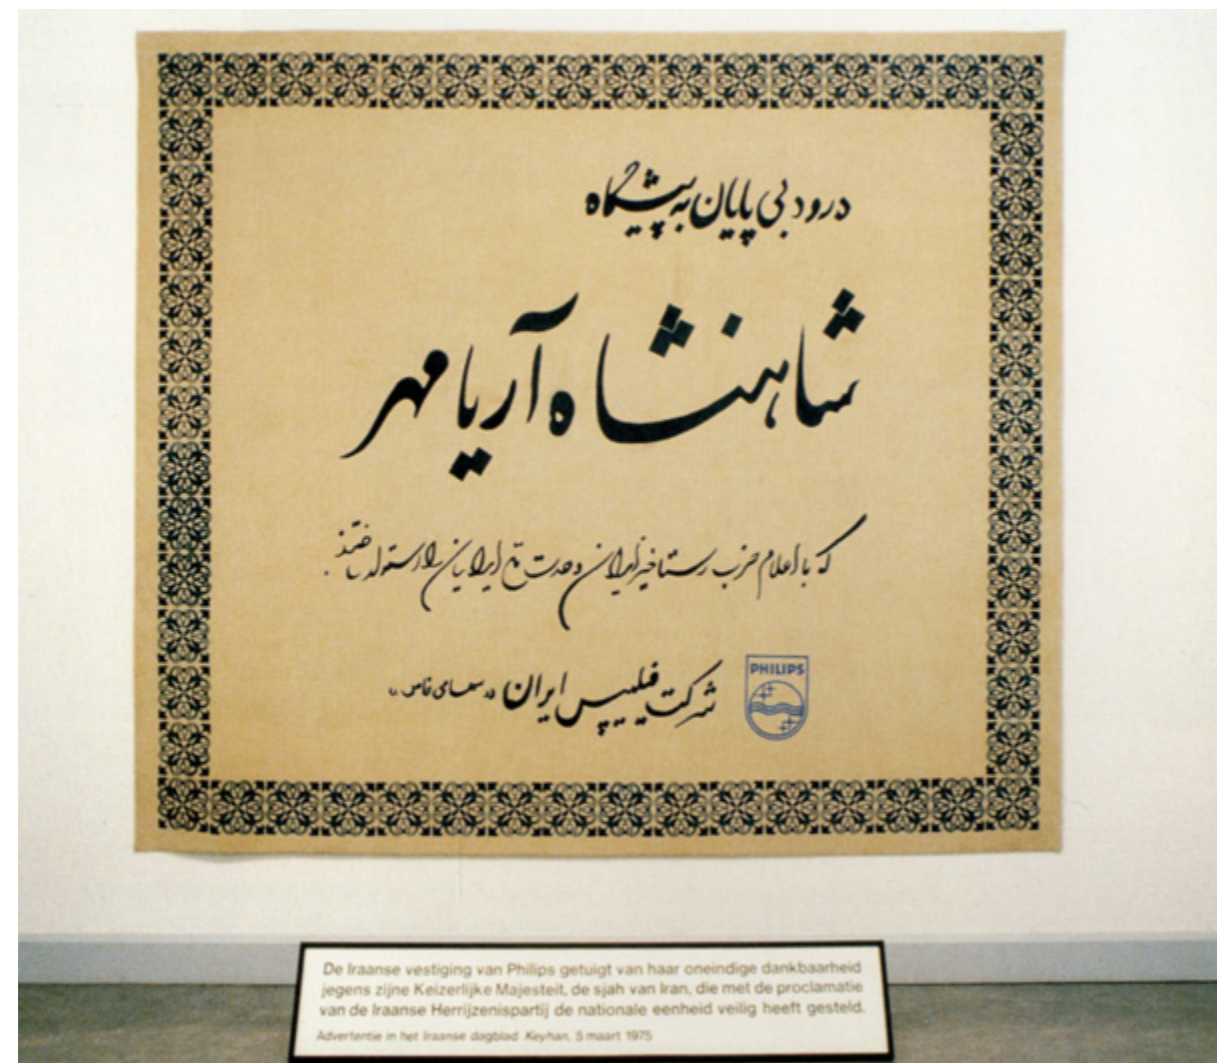 درود بی پایان به پیشگاه
شاهنشاه آریامهر
که با اعلام حزب رستاخیز ایران وحدت ملی ایرانیان را استوار ساختند.
PHILIPS
شرکت فیلیپس ایران «سهامی خاص»
De Iraanse vestiging van Philips getuigt van haar oneindige dankbaarheid
jegens zijne Keizerlijke Majesteit, de sjah van Iran, die met de proclamatie
van de Iraanse Herrijzenispartij de nationale eenheid veilig heeft gesteld.
Advertentie in het Iraanse dagblad Keyhan, 5 maart 1975